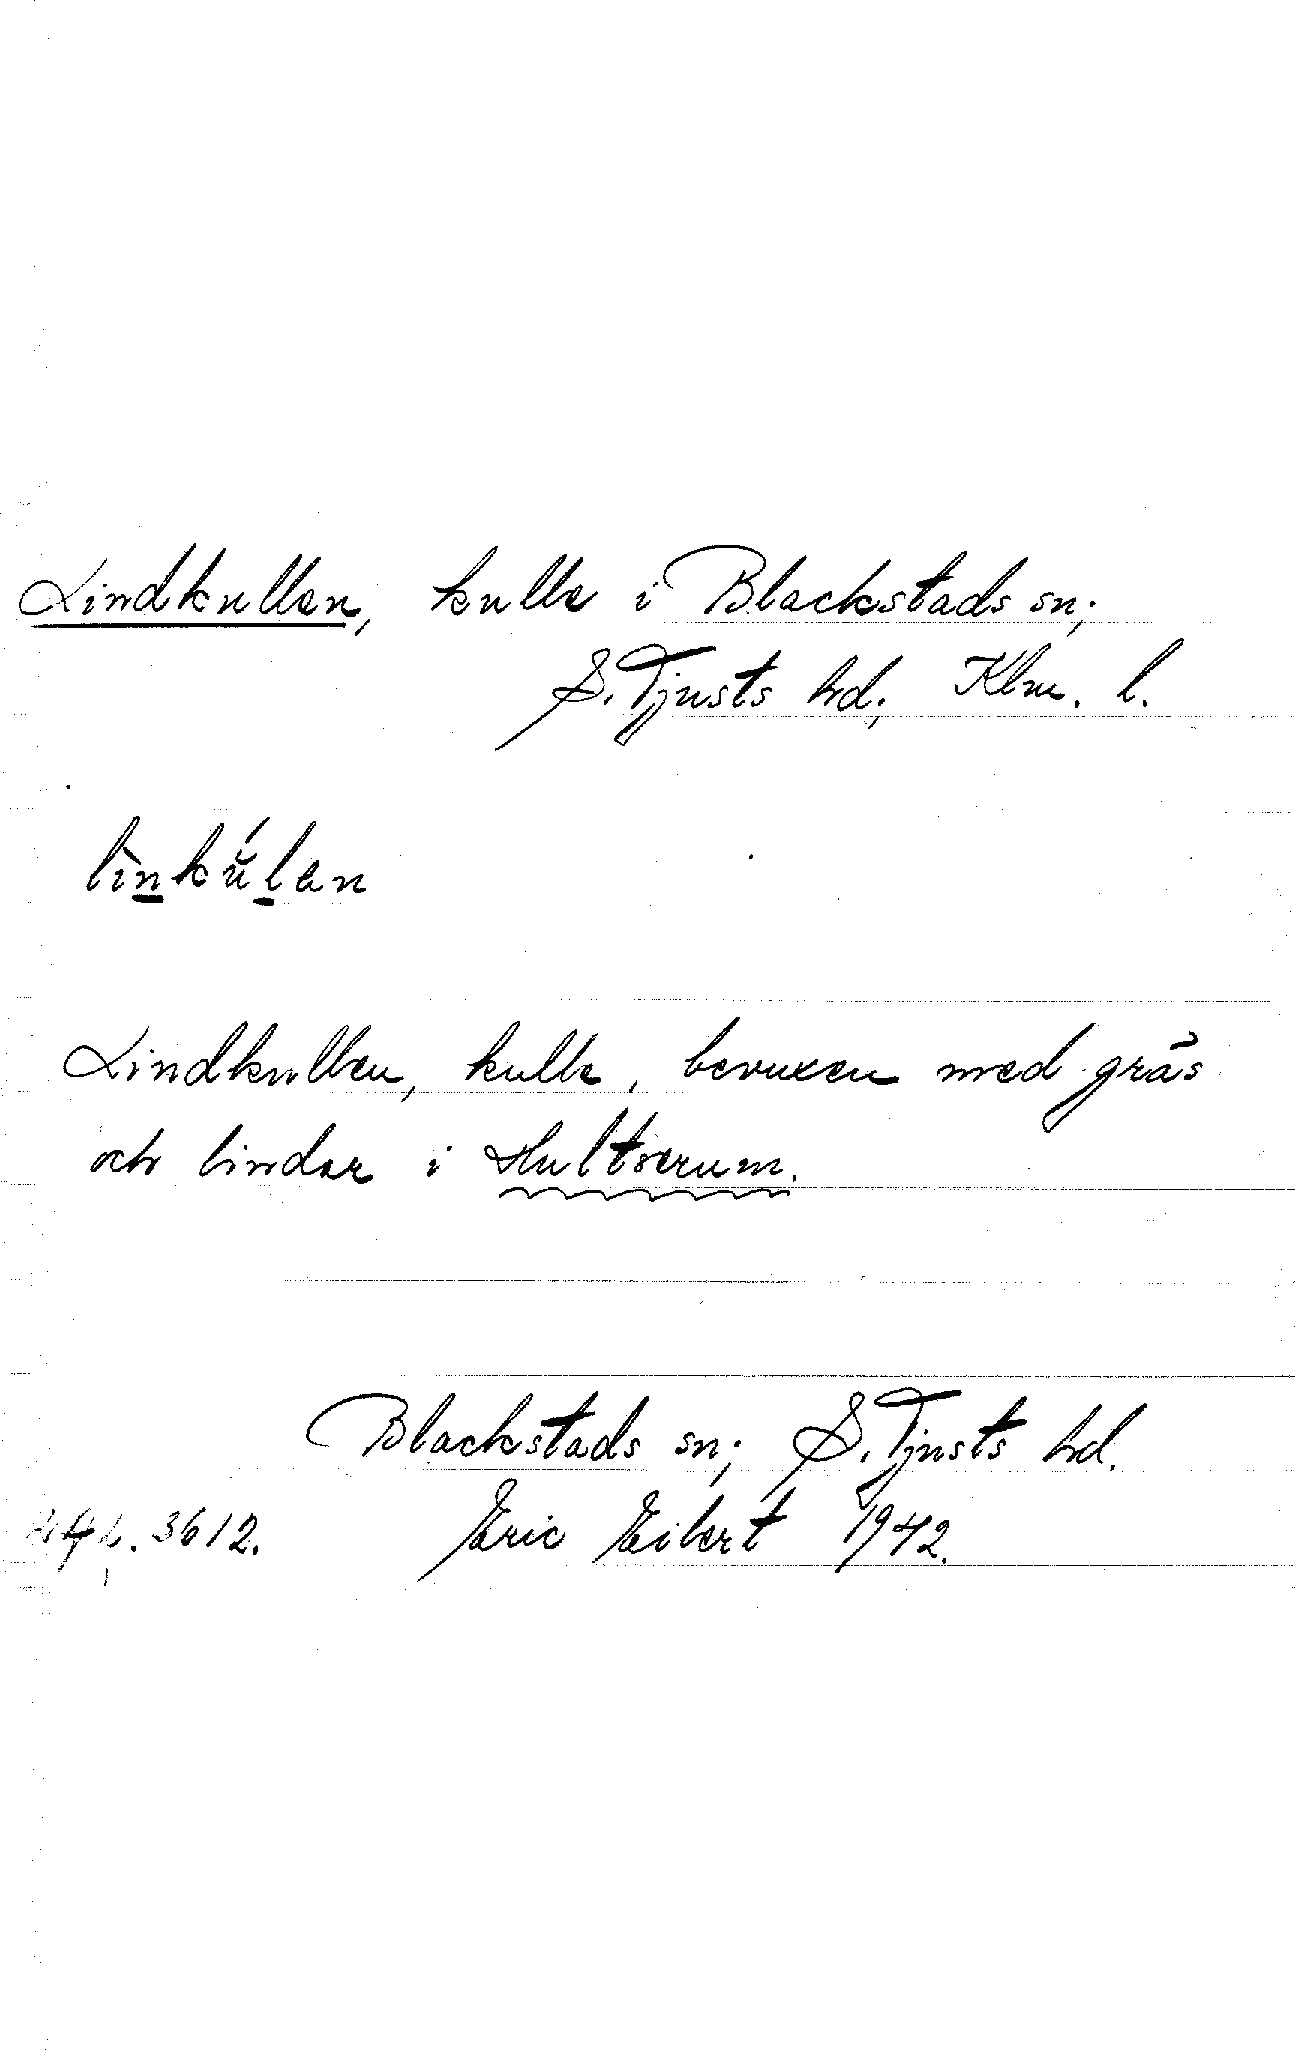 Lindkullen, kulle i Blackstads sn;
S. Tjusts hd; Klm. l.
lìnkŭ́len
Lindkullen, kulle, bevuxen med gräs
och lindar i Hultserum.
Blackstads sn; S. Tjusts hd.
3612. Eric Eilert 1942.